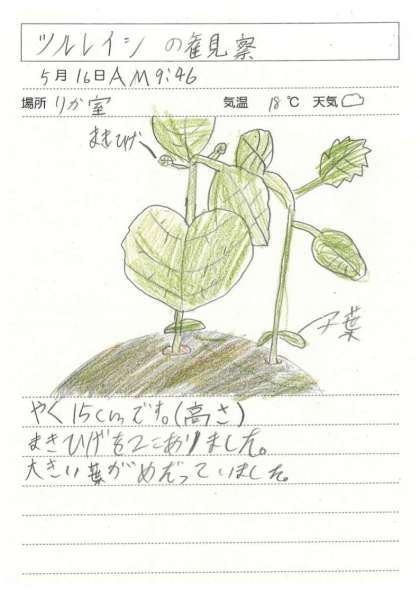 ツルレイシの観察
5月16日AM9:46
場所 りか室 気温 18℃ 天気
まきひげ
子葉
やく15cmです。(高さ)
まきひげを2こありました。
大きい葉がめだっていました。